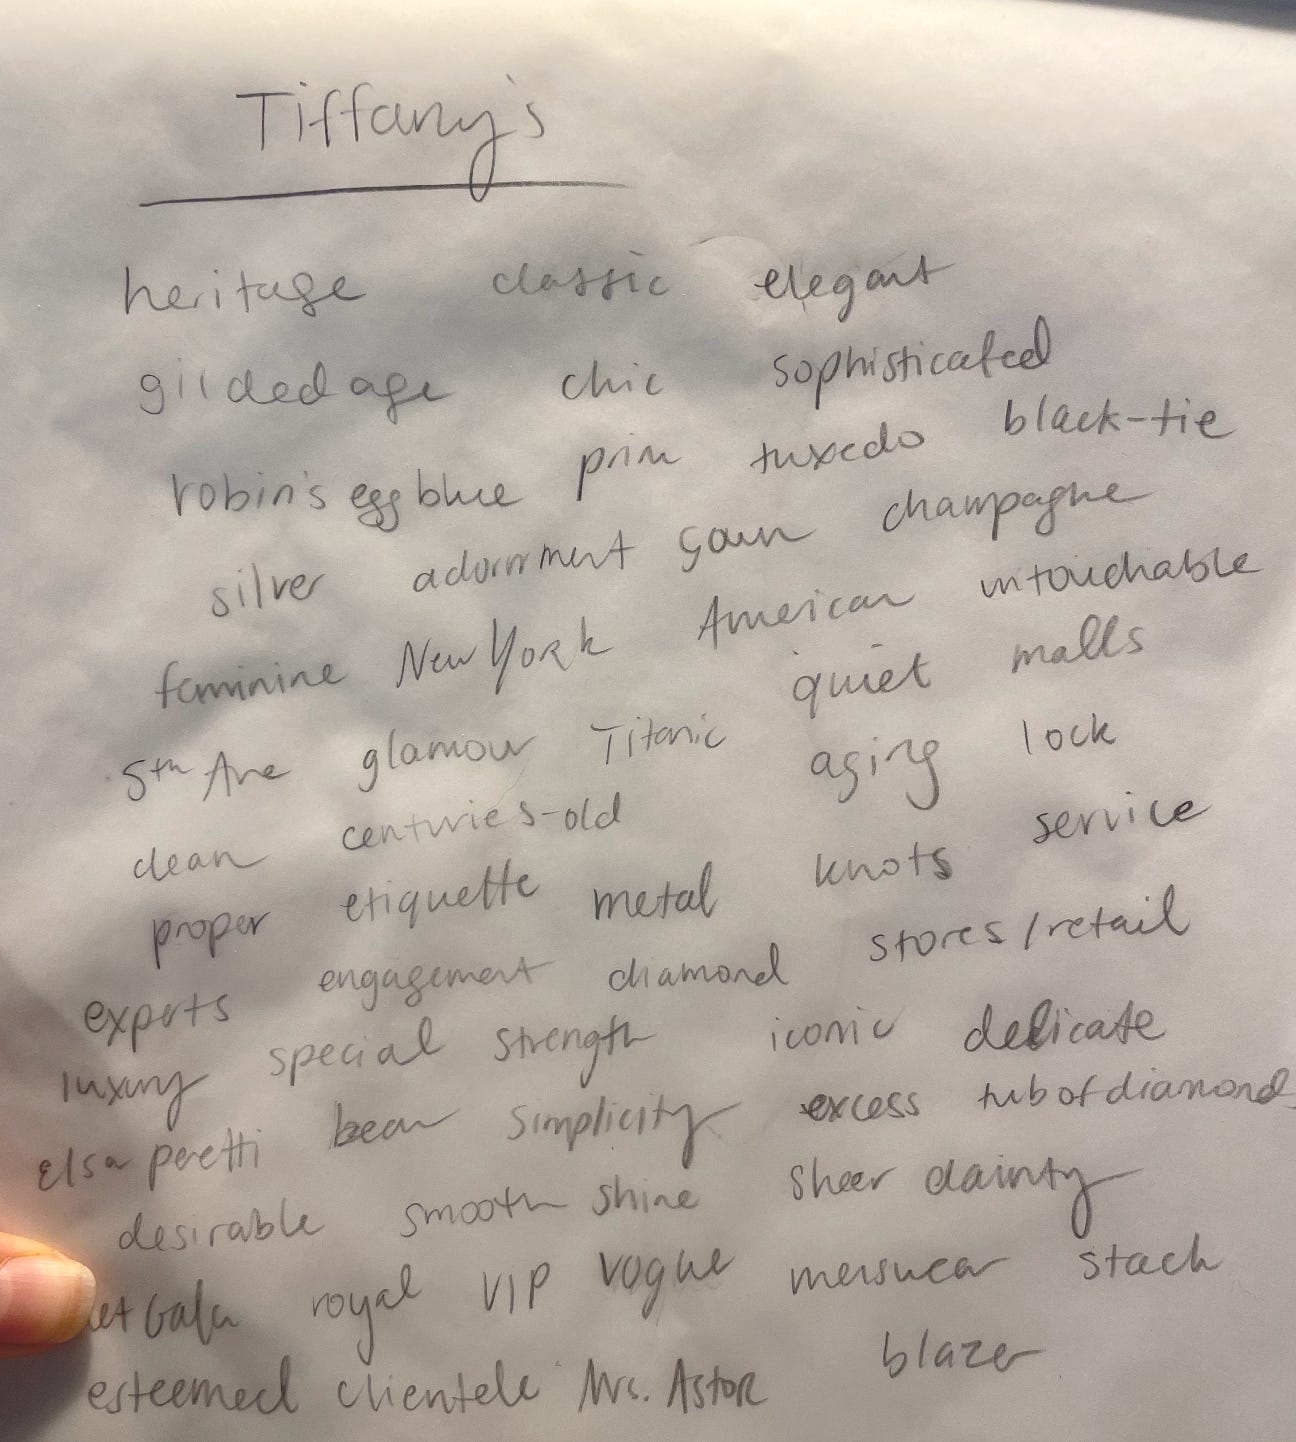 Tiffany's
heritage classic elegant
gilded age chic sophisticated
robin's egg blue prim tuxedo black-tie
silver adornment gown champagne
feminine New York American untouchable
5th Ave glamour Titanic quiet malls
clean centuries-old aging lock
proper etiquette metal knots service
experts engagement diamond stores/retail
luxury special strength iconic delicate
Elsa peretti bean simplicity excess tub of diamonds
desirable smooth shine sheer dainty
Gala royal VIP vogue menswear stack
esteemed clientele Mrs. Astor blazer